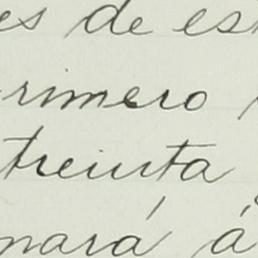 es de es
rimero
treinta
mará á